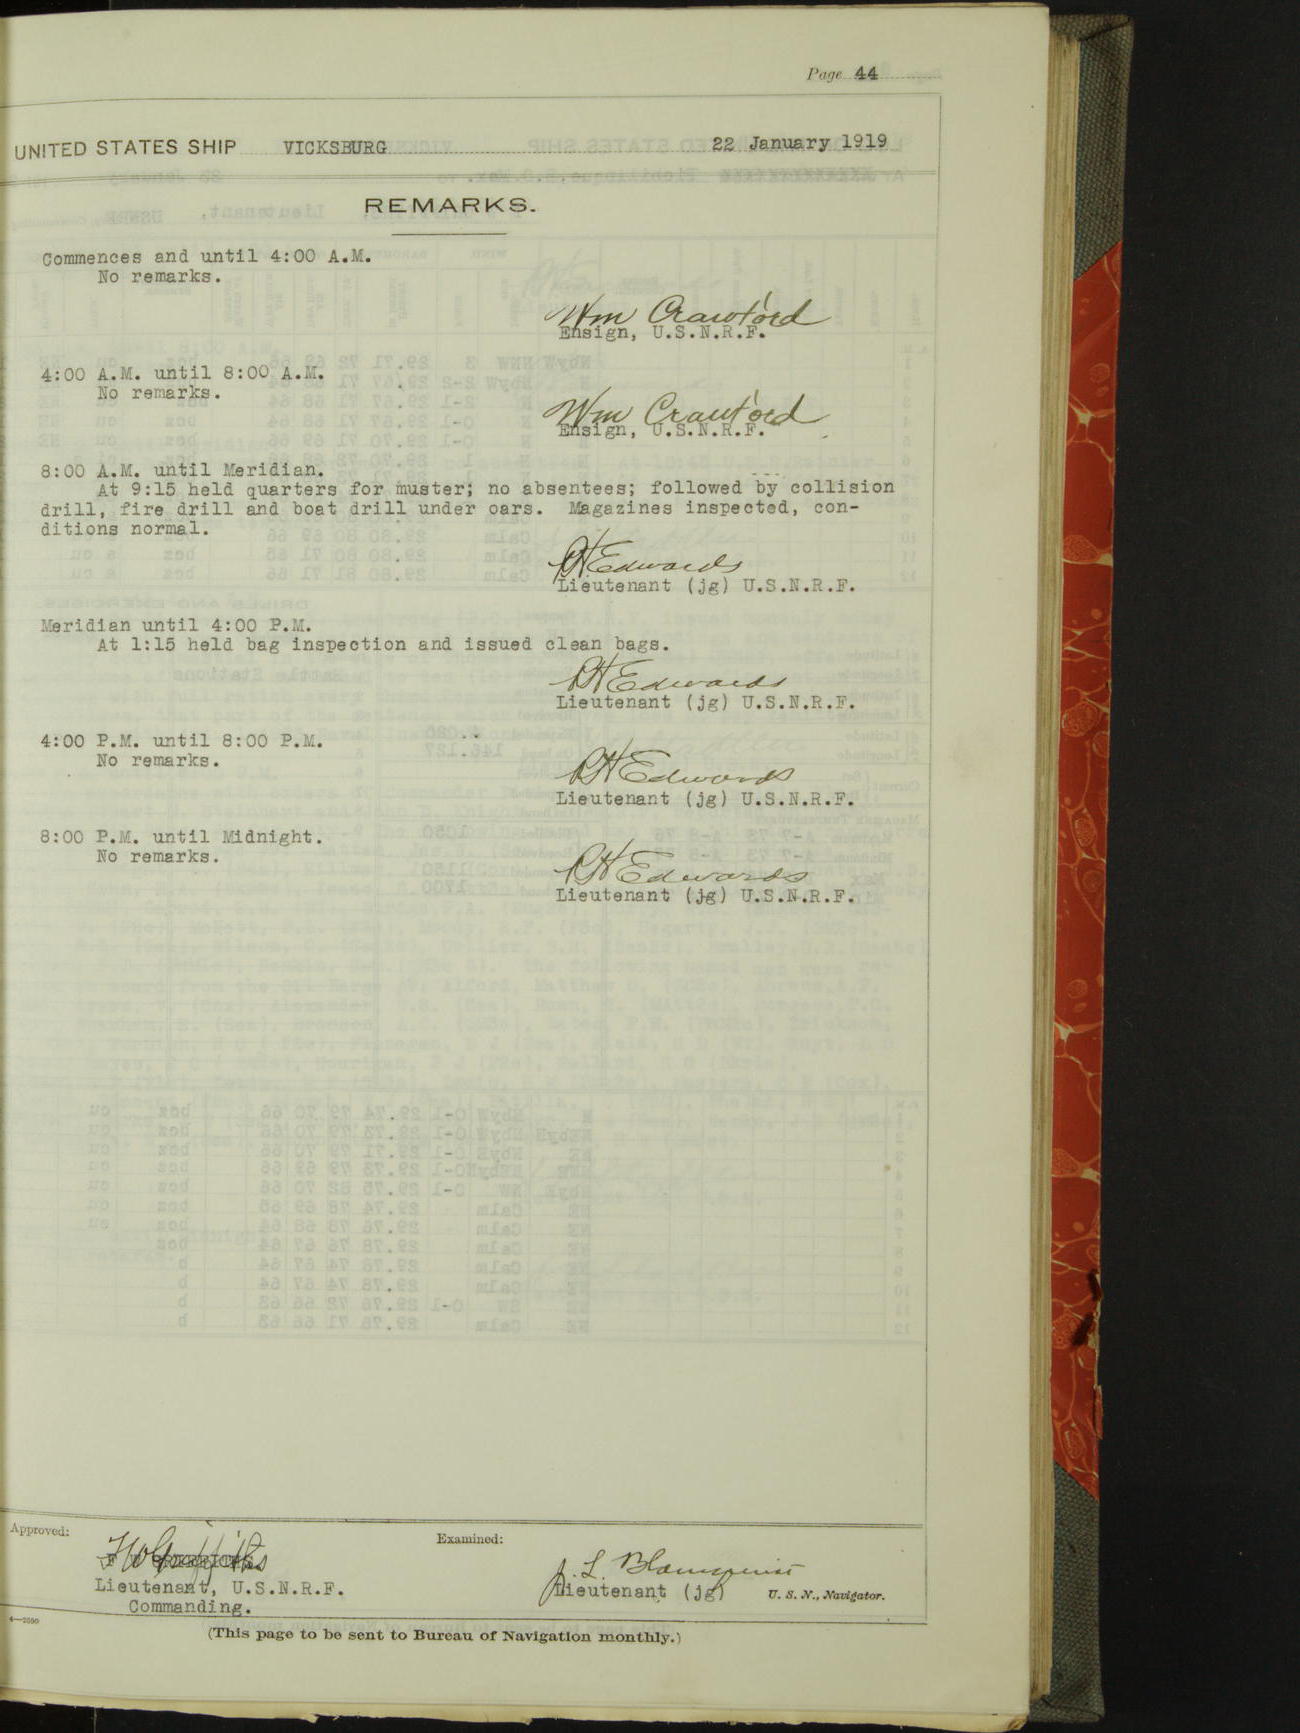 Page 44
UNITED STATES SHIP VICKSBURG 22 January 1919
REMARKS.
Commences and until 4:00 A.M.
No remarks.
Wm Crawford
Ensign, U.S.N.R.F.
4:00 A.M. until 8:00 A.M.
No remarks.
Wm Crawford
Ensign, U.S.N.R.F.
8:00 A.M. until Meridian.
At 9:15 held quarters for muster; no absentees; followed by collision
drill, fire drill and boat drill under oars. Magazines inspected, con-
ditions normal.
Edwards
Lieutenant (jg) U.S.N.R.F.
Meridian until 4:00 P.M.
At 1:15 held bag inspection and issued clean bags.
Edwards
Lieutenant (jg) U.S.N.R.F.
4:00 P.M. until 8:00 P.M.
No remarks.
Edwards
Lieutenant (jg) U.S.N.R.F.
8:00 P.M. until Midnight.
No remarks.
Edwards
Lieutenant (jg) U.S.N.R.F.
Approved: Examined:
J. L. Blomquist
Lieutenant, U.S.N.R.F. Lieutenant (jg) U. S. N., Navigator.
Commanding.
(This page to be sent to Bureau of Navigation monthly.)